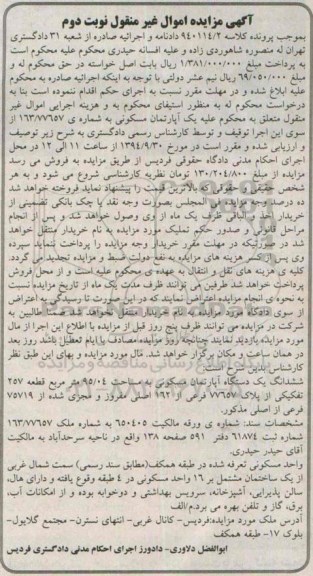 آگهی مزایده اموال غیر منقول نوبت دوم
بموجب پرونده کلاسه ۹۴۰۱۱۴/۲ دادنامه و اجرائیه صادره از شعبه ۳۱ دادگستری
تهران له منصوره شاهوردی زاده و علیه افسانه حیدری محکوم علیه محکوم است
به پرداخت مبلغ ۱/۳۸۱/۰۰۰/۰۰۰ ریال بابت اصل خواسته در حق محکوم له و
مبلغ ۶۹/۰۵۰/۰۰۰ ریال نیم عشر دولتی با توجه به اینکه اجرائیه صادره به محکوم
علیه ابلاغ شده و در مهلت مقرر نسبت به اجرای حکم اقدام ننموده است بنا به
درخواست محکوم له به منظور استیفای محکوم به و هزینه اجرایی اموال غیر
منقول متعلق به محکوم علیه یک آپارتمان مسکونی به شماره ی ۱۶۳/۷۷۶۵۷ از
سوی این اجرا توقیف و توسط کارشناس رسمی دادگستری به شرح زیر توصیف
و ارزیابی شده و مقرر است در مورخ ۱۳۹۴/۹/۳۰ از ساعت ۱۱ الی ۱۲ در محل
اجرای احکام مدنی دادگاه حقوقی فردیس از طریق مزایده به فروش می رسد
مزایده از مبلغ ۱۳۰/۲۰۴/۸۰۰ تومان نظریه کارشناسی شروع می شود و به هر
شخص حقیقی و حقوقی که بالاترین قیمت را پیشنهاد نماید فروخته خواهد شد
ده درصد وجه مزایده فی المجلس بصورت وجه نقد یا چک بانکی تضمینی از
خریدار اخذ و الباقی ظرف یک ماه از وی وصول خواهد شد و پس از انجام
مراحل قانونی و صدور حکم تملیک مورد مزایده به نام خریدار منتقل خواهد
شد در صورتیکه در مهلت مقرر خریدار وجه مزایده را پرداخت ننماید سپرده
وی پس از کسر هزینه های مزایده به نفع دولت ضبط و مزایده تجدید می گردد
کلیه ی هزینه های نقل و انتقال به عهده ی محکوم علیه است و از محل فروش
پرداخت خواهد شد طرفین می توانند ظرف مدت یک ماه از تاریخ مزایده نسبت
به نحوه ی انجام مزایده اعتراض نمایند که در این صورت تا رسیدگی به اعتراض
از سوی دادگاه مورد مزایده به نام خریدار منتقل نخواهد شد. ضمنا طالبین به
شرکت در مزایده می توانند ظرف پنج روز قبل از مزایده با اطلاع این اجرا از مال
مورد مزایده بازدید نمایند چنانچه روز مزایده مصادف با ایام تعطیل باشد روز بعد
در همان ساعت و مکان برگزار خواهد شد. مال مورد مزایده و بهای این طبق نظر
کارشناس بدین شرح است:
ششدانگ یک دستگاه آپارتمان مسکونی به مساحت ۹۵/۰۴ متر مربع قطعه ۲۵۷
تفکیکی از پلاک ۷۷۶۵۷ فرعی از ۱۶۲ اصلی مفروز و مجزی شده از ۷۵۷۱۹
فرعی از اصلی مذکور.
مشخصات سند: شماره ی ورقه مالکیت ۶۵۰۴۰۵ به شماره ملک ۱۶۳/۷۷۶۵۷
شماره ثبت ۶۱۸۷۴ دفتر ۵۹۱ صفحه ۱۳۸ واقع در ناحیه سرحدآباد به مالکیت
آقای حیدر حیدری.
واحد مسکونی تعرفه شده در طبقه همکف(مطابق سند رسمی) سمت شمال غربی
از یک ساختمان مشتمل بر ۱۶ واحد مسکونی در ۴ طبقه وقوع یافته و دارای هال،
سالن پذیرایی، آشپزخانه، سرویس بهداشتی و دوخوابه بوده و از امکانات آب،
برق، گاز و تلفن بهره می بردم/الف
آدرس ملک مورد مزایده:فردیس- کانال غربی- انتهای نسترن- مجتمع گلایول-
بلوک ۱۷- طبقه همکف
ابوالفضل دلاوری- دادورز اجرای احکام مدنی دادگستری فردیس